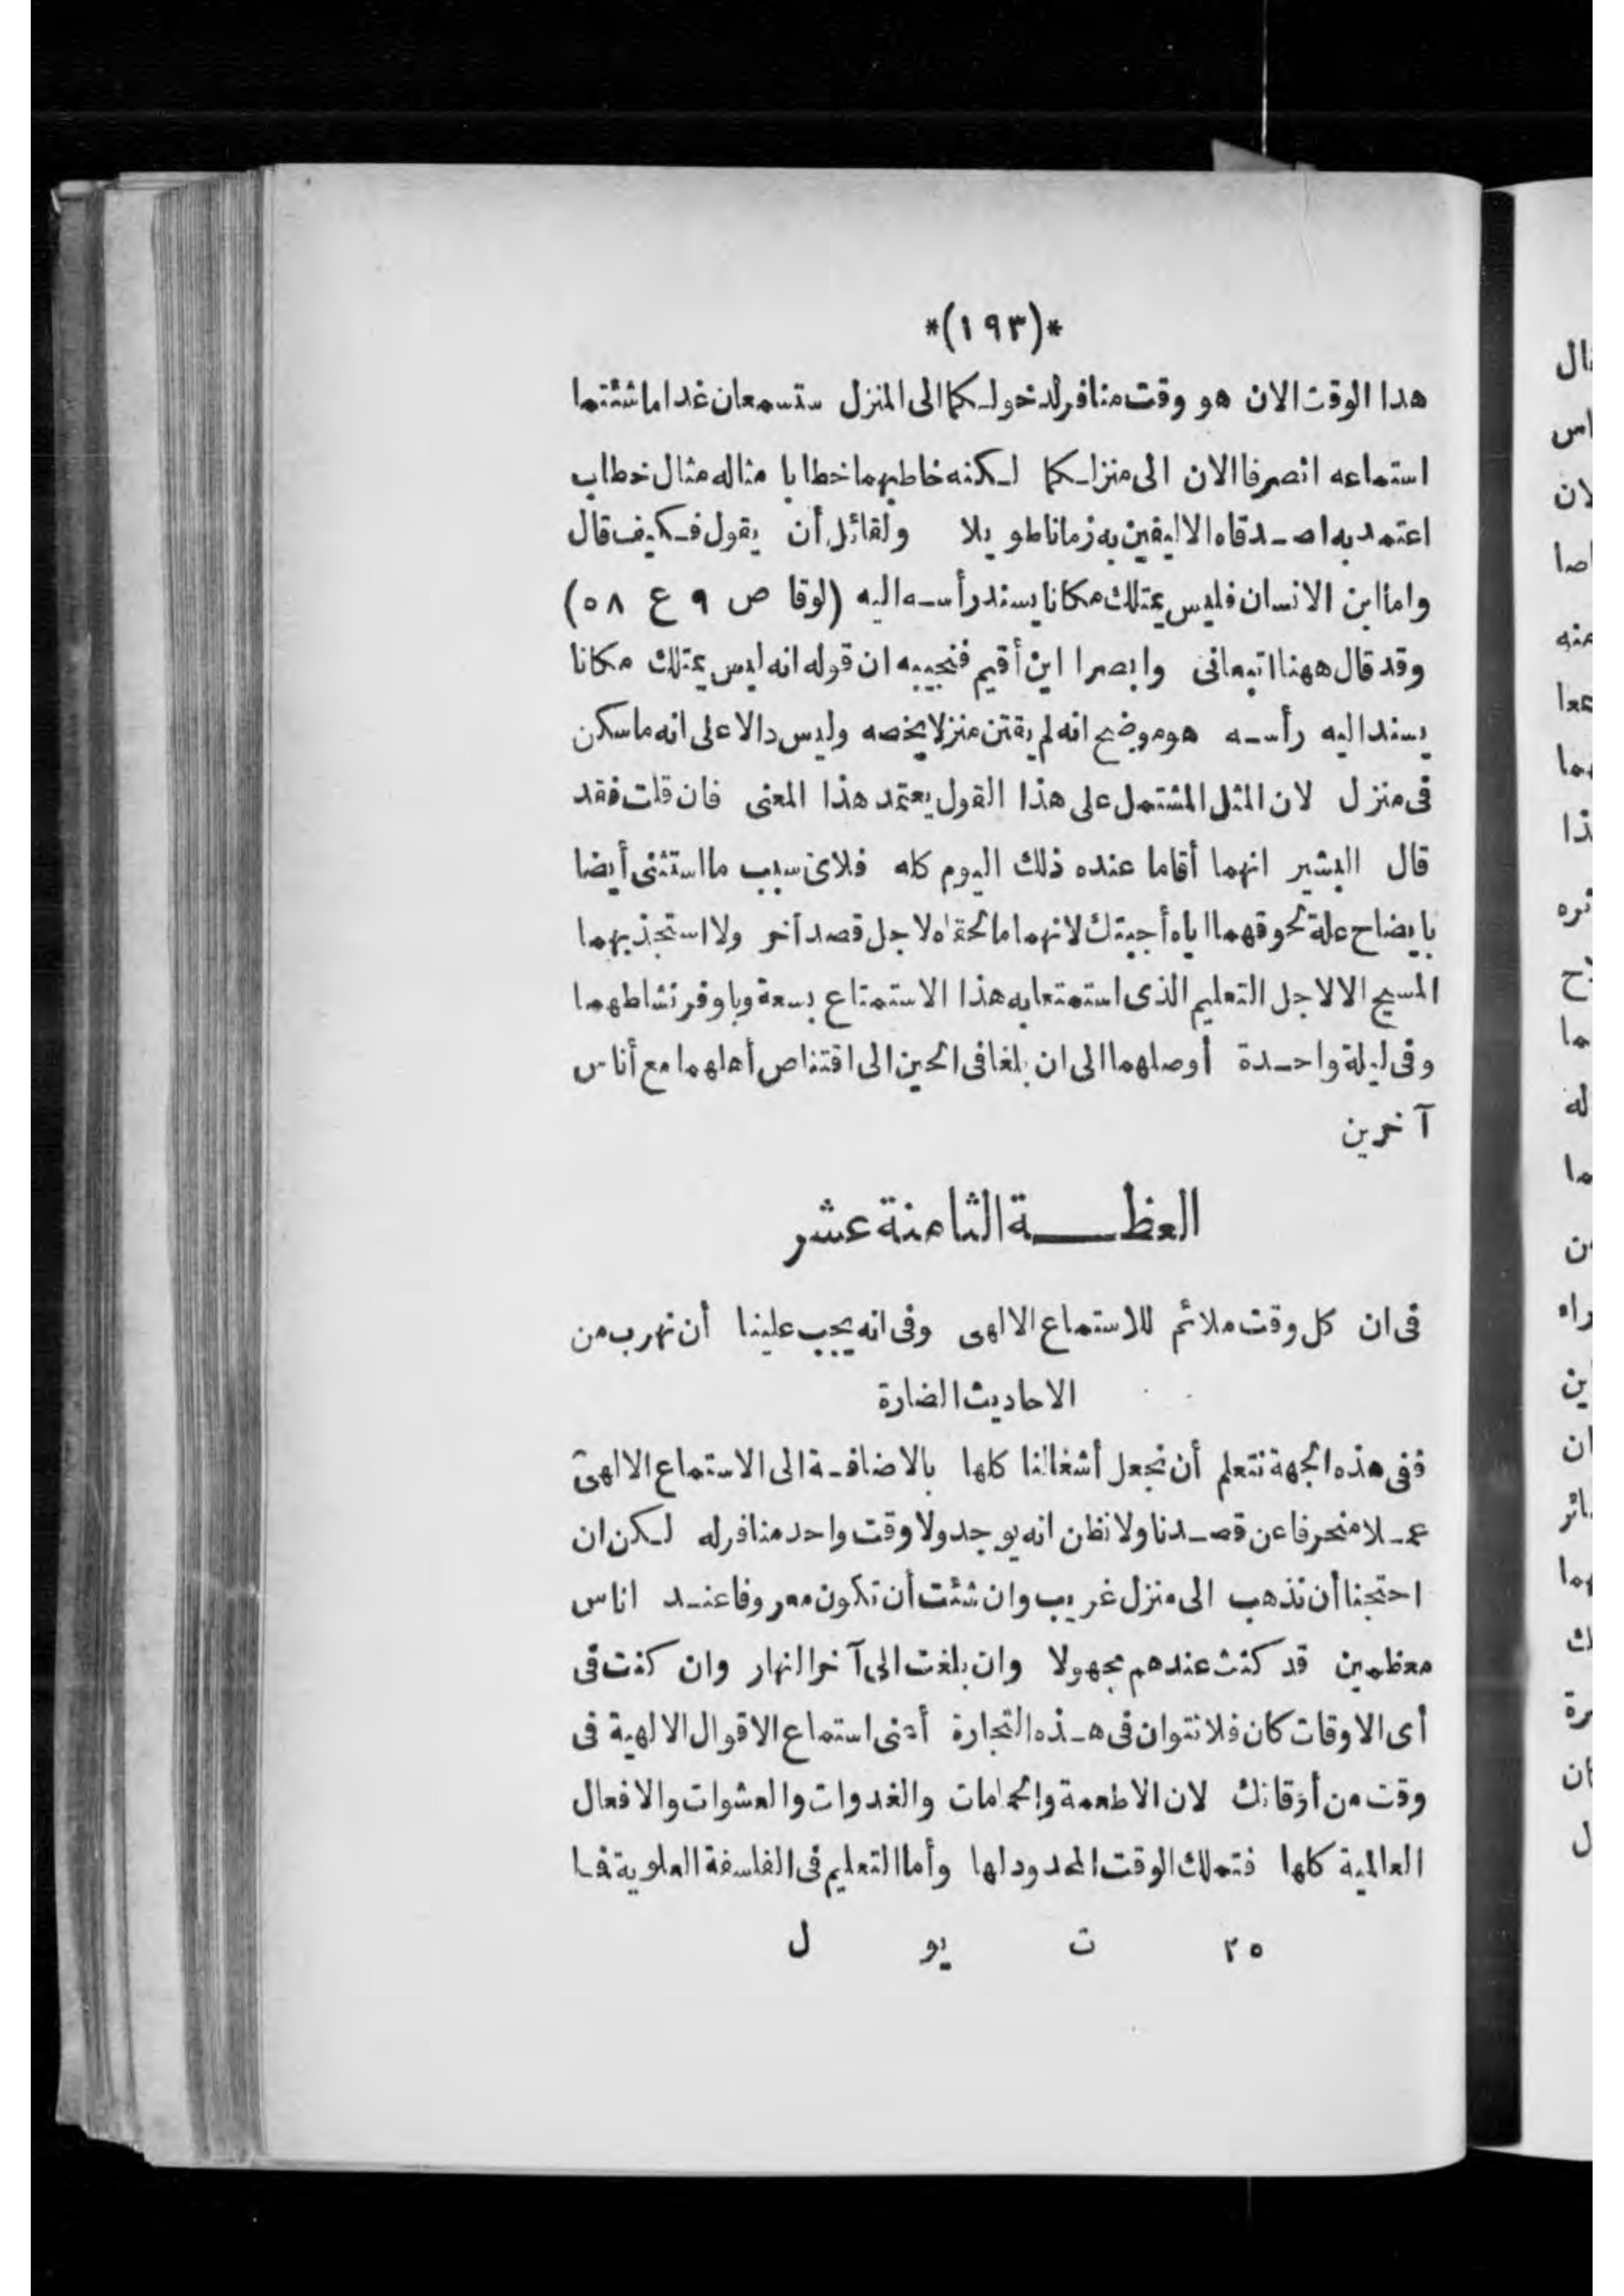 *(١٩٣)*
هدا الوقت الان هو وقت منافر لدخولكما الى المنزل ستسمعان غدا ماشئتما
استماعه انصرفا الان الى منزلكما لكنه خاطبهما خطابا مثاله مثال خطاب
اعتمد به اصدقاه الاليفين به زمانا طويلا ولقائل أن يقول فكيف قال
واما ابن الانسان فليس يمتلك مكانا يسند رأسه اليه (لوقا ص ٩ ع ٥٨)
وقد قال ههنا اتبعانى وابصرا اين أقيم فنجيبه ان قوله انه ليس يمتلك مكانا
يسند اليه رأسه هو موضح انه لم يقتن منزلا يخصه وليس دالا على انه ماسكن
فى منزل لان المثل المشتمل على هذا القول يعتمد هذا المعنى فان قلت فقد
قال البشير انهما أقاما عنده ذلك اليوم كله فلاى سبب ما استثنى أيضا
بايضاح علة لحوقهما اياه أجيبتك لانهما مالحقاه لاجل قصد آخر ولا استجذبهما
المسيح الا لاجل التعليم الذى استمتعا به هذا الاستمتاع بسعة وباوفر نشاطهما
وفى ليلة واحدة أوصلهما الى ان بلغا فى الحين الى اقتناص أهلهما مع أناس
آخرين
العظة الثامنة عشر
فى ان كل وقت ملائم للاستماع الالهى وفى انه يجب علينا أن نهرب من
الاحاديث الضارة
ففى هذه الجهة نتعلم أن نجعل أشغالنا كلها بالاضافة الى الاستماع الالهى
عملا منحرفا عن قصدنا ولا نظن انه يوجد ولا وقت واحد منافر له لكن ان
احتجنا أن نذهب الى منزل غريب وان شئت أن تكون معروفا عند اناس
معظمين قد كنت عندهم مجهولا وان بلغت الى آخر النهار وان كنت فى
أى الاوقات كان فلا تتوان فى هذه التجارة أعنى استماع الاقوال الالهية فى
وقت من أوقاتك لان الاطعمة والحمامات والغدوات والعشوات والافعال
العالمية كلها فتملك الوقت المحدود لها وأما التعليم فى الفلسفة العلوية فما
٢٥ ت يو ل